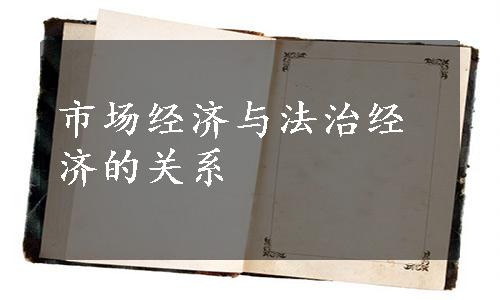 市场经济与法治经
济的关系